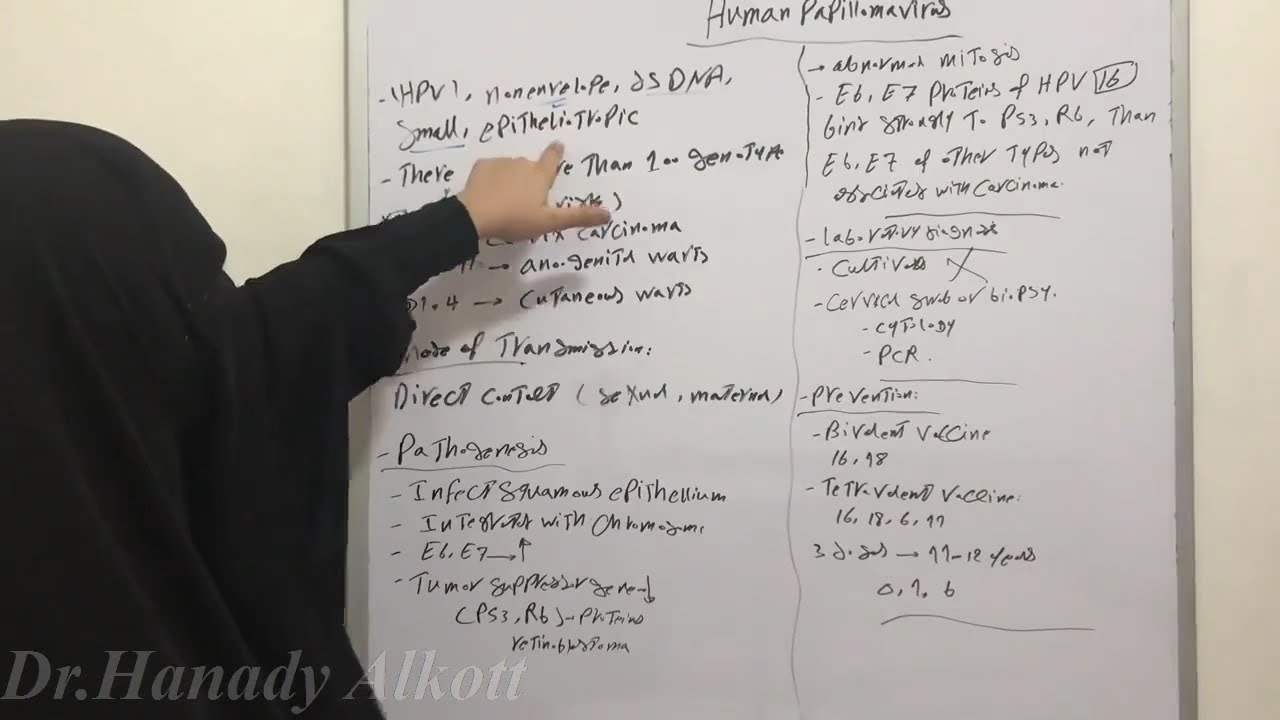 Human Papillomavirus
- (HPV), nonenvelope, dsDNA,
Small, epitheliotropic
- There re Than 100 genotype
risk)
carcinoma
11 → anogenital warts
1.4 → cutaneous warts
Mode of Transmission:
Direct contact (sexual, maternal)
- Pathogenesis
- Infect squamous epithellium
- Integrates with chromosome
- E6, E7 → ↑
- Tumor suppressor gene ↓
(P53, Rb) → proteins
retinoblastoma
→ abnormal mitosis
- E6, E7 proteins of HPV 16
bind strongly To P53, Rb, Than
E6, E7 of other Types not
with carcinoma.
- laboratory diagnosis
- Cultivate X
- Cervical swab or biopsy.
- cytology
- PCR.
- Prevention:
- Bivalent vaccine
16, 18
- Tetravalent vaccine:
16, 18, 6, 11
3 doses → 11-12 years
0, 1, 6
Dr.Hanady Alkott